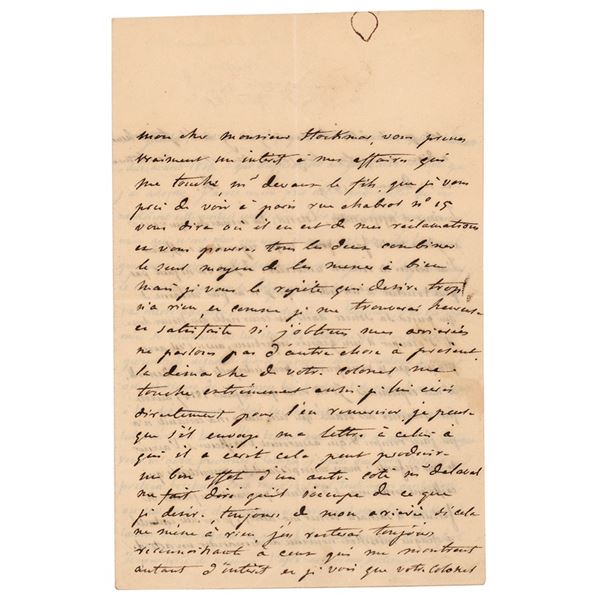 mon cher monsieur Stockmar, vous prenez
vraiment un interet à mes affaires qui
me touche mr devaux le fils, que je vous
prie de voir à paris rue chabrol no 15
vous dira où il en est de mes réclamations
et vous pourrez tous les deux combiner
le seul moyen de les mener à bien
mais je vous le repète qui desire trop
n'a rien, et comme je me trouverai heureuse
et satisfaite si j'obtiens mes arriérés
ne parlons pas d'autre chose à présent
la démarche de votre colonel me
touche extrèmement aussi je lui écris
directement pour l'en remercier, je pense
que s'il envoye ma lettre à celui à
qui il a écrit cela peut produire
un bon effet d'un autre coté mr delaval
me fait dire qu'il s'occupe de ce que
je desire toujours de mon arriéré si cela
ne mène à rien j'en resterai toujours
reconnoissant à ceux qui me montrent
autant d'intéret et je vois que votre colonel